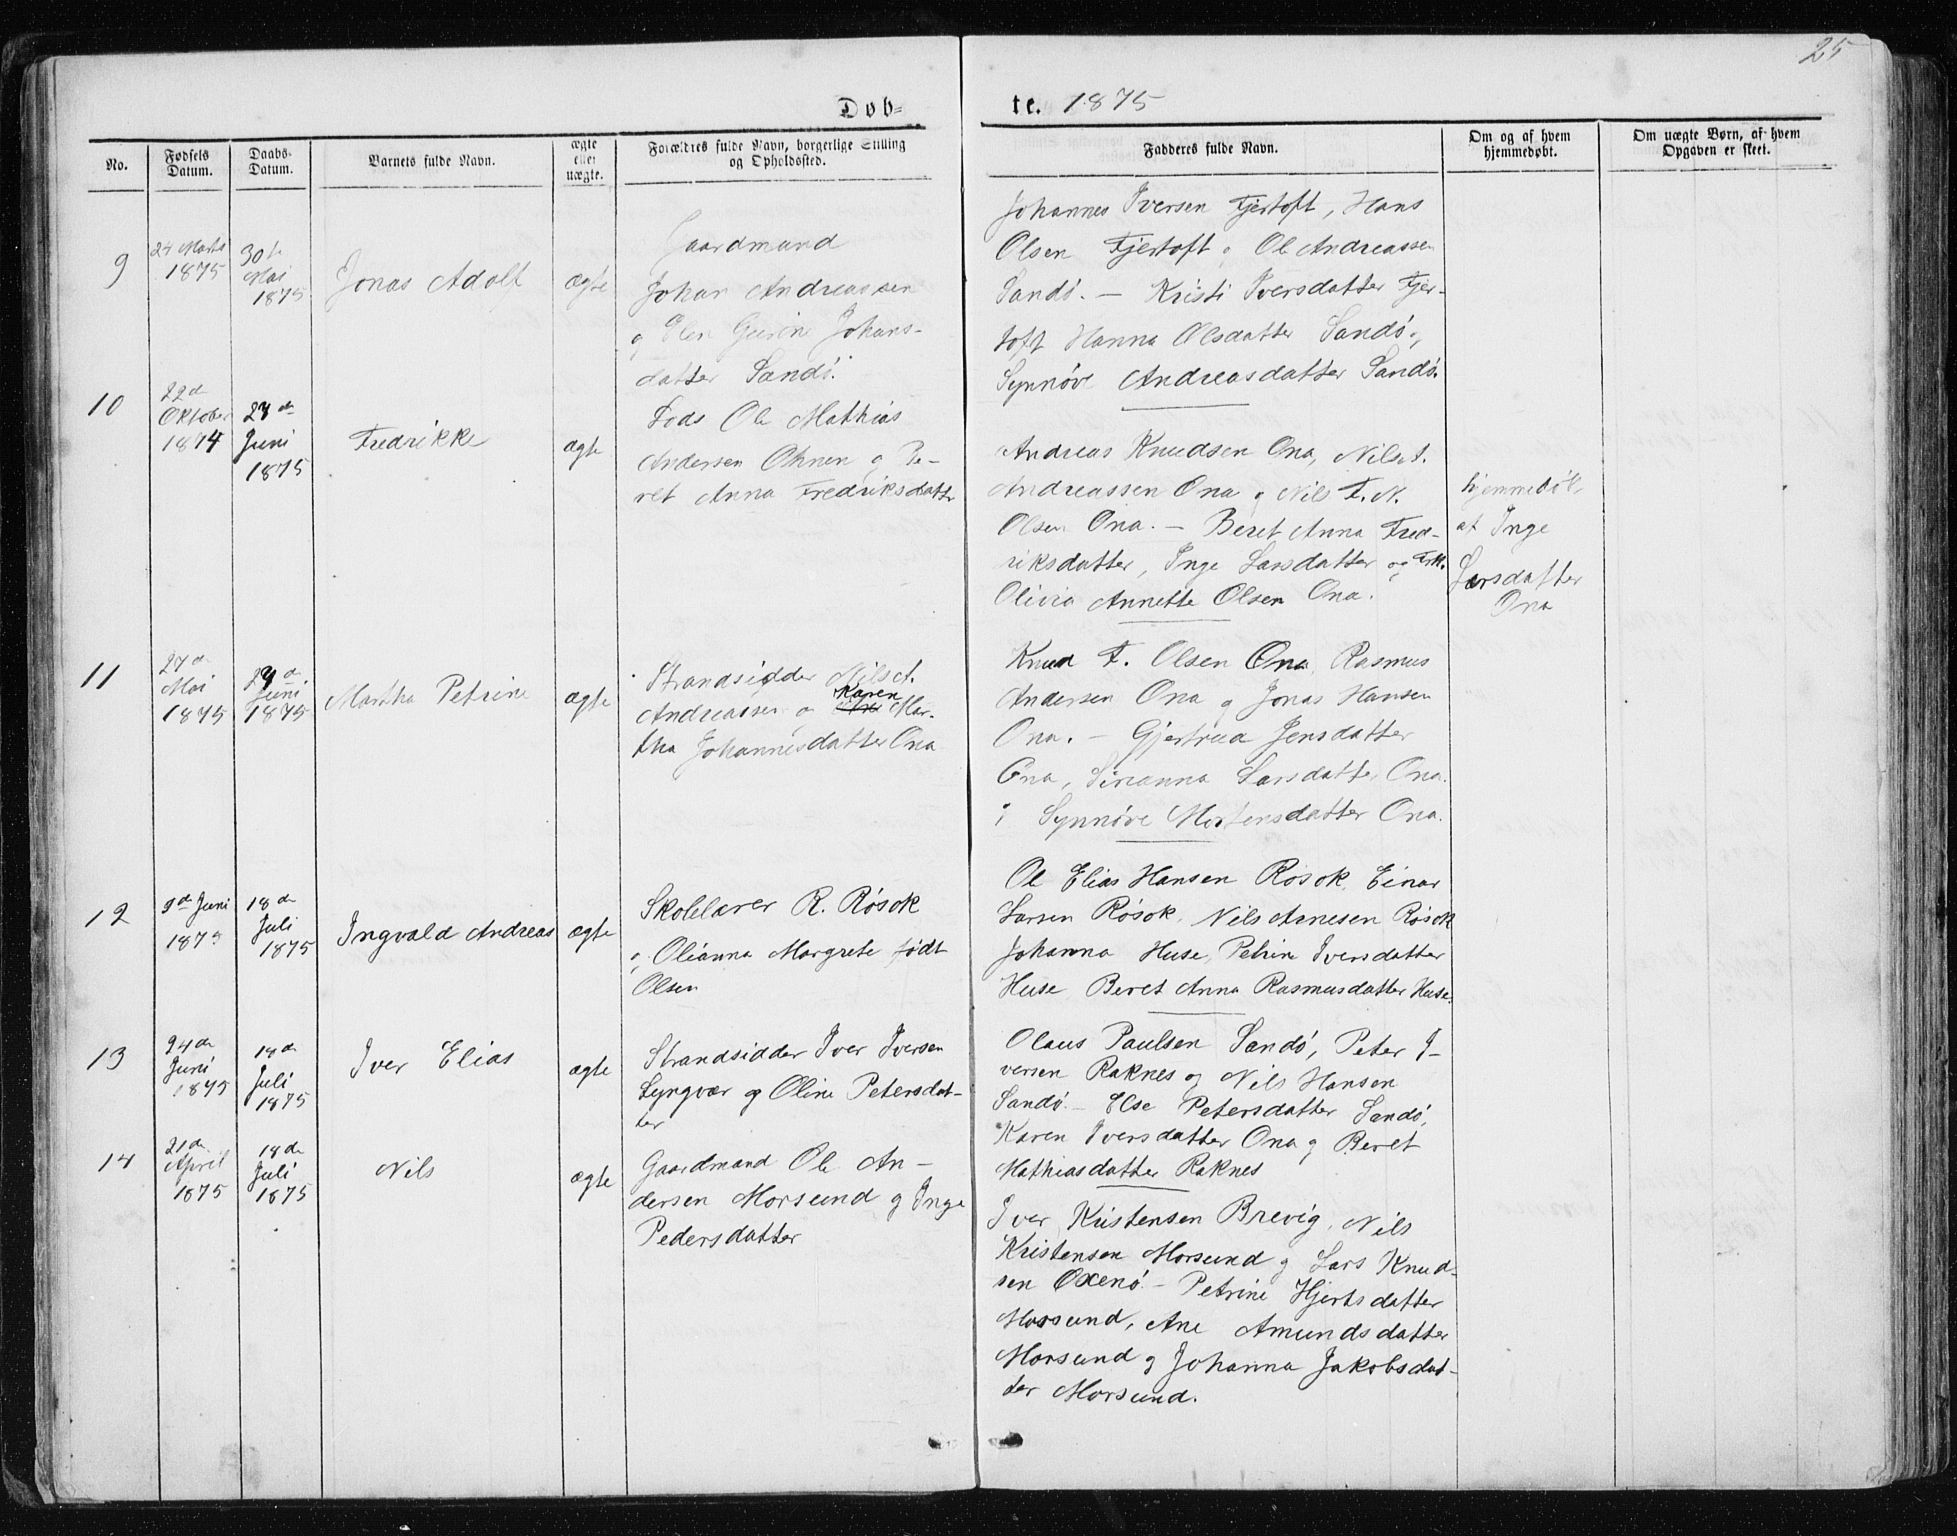 25
Døb=
te. 1875
No.
Fødsels
Datum.
Daabs-
Datum.
Barnets fulde Navn.
ægte
eller
uægte.
Forældres fulde Navn, borgerlige Stilling
og Opholdssted.
Fadderes fulde Navn.
Om og af hvem
hjemmedøbt.
Om uægte Børn, af hvem
Opgaven er skeet.
9
24 Marts
1875
30te
Mai
1875
Jonas Adolf
ægte
Gaardmand
Johan Andreassen
og Elen Gurine Johans-
datter Sandø.
Johannes Iversen Fjertoft, Hans
Olsen Fjertoft og Ole Andreassen
Sandø. — Kristi Iversdatter Fjer-
toft Hanna Olsdatter Sandø og
Synnøve Andreasdatter Sandø.
10
22de
Oktober
1874
Juni
1875
Fredrikke
ægte
Lods Ole Mathias
Andersen Ohnen og Be-
ret Anna Fredriksdatter
Andreas Knudsen Ona, Nils A.
Andreassen Ona og Nils F. N.
Olsen Ona. — Beret Anna Fred-
riksdatter, Inge Larsdatter og Frk.
Olivia Annette Olsen Ona.
hjemmedøbt
af Inge
Larsdatter
Ona
11
27de
Mai
1875
Juni
1875
Martha Petrine
ægte
Strandsidder Nils A.
Andreassen og Karen Mar-
tha Johannesdatter Ona
Knud F. Olsen Ona, Rasmus
Andersen Ona og Jonas Hansen
Ona. — Gjertrud Jensdatter
Ona, Sirianna Larsdatter Ona
og Synnøve Mortensdatter Ona.
12
9de Juni
1875
18de
Juli
1875
Ingvald Andreas
ægte
Skolelærer R. Røsok
og Olianna Margrete født
Olsen
Ole Elias Hansen Røsok, Einar
Larsen Røsok, Nils Arnesen Røsok
Johanna Huse, Petrine Iversdatter
Huse, Beret Anna Rasmusdatter Huse.
13
24de
Juni
1875
18de
Juli
1875
Iver Elias
ægte
Strandsidder Iver Iversen
Lyngvær og Oline Petersdat-
ter
Olaus Paulsen Sandø, Peter I-
versen Raknes og Nils Hansen
Sandø — Else Petersdatter Sandø,
Karen Iversdatter Ona og Beret
Mathiasdatter Raknes
14
21de
April
1875
18de
Juli
1875
Nils
ægte
Gaardmand Ole An-
dersen Morsund og Inge
Pedersdatter
Iver Kristensen Brevig, Nils
Kristensen Morsund og Lars Knud-
sen Oxenø — Petrine Hjertsdatter
Morsund, Ane Amundsdatter
Morsund og Johanna Jakobsdat-
ter Morsund.